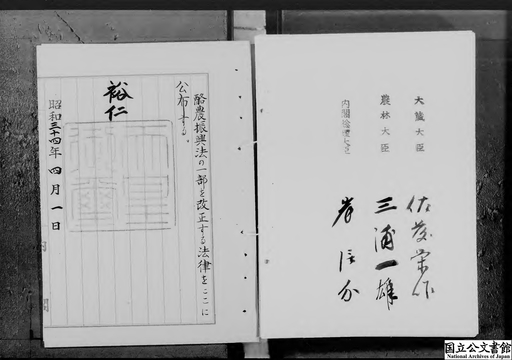 酪農振興法の一部を改正する法律をここに
公布する。
裕仁
昭和三十四年四月一日
大蔵大臣 佐藤栄作
農林大臣 三浦一雄
内閣総理大臣 岸信介
国立公文書館
National Archives of Japan